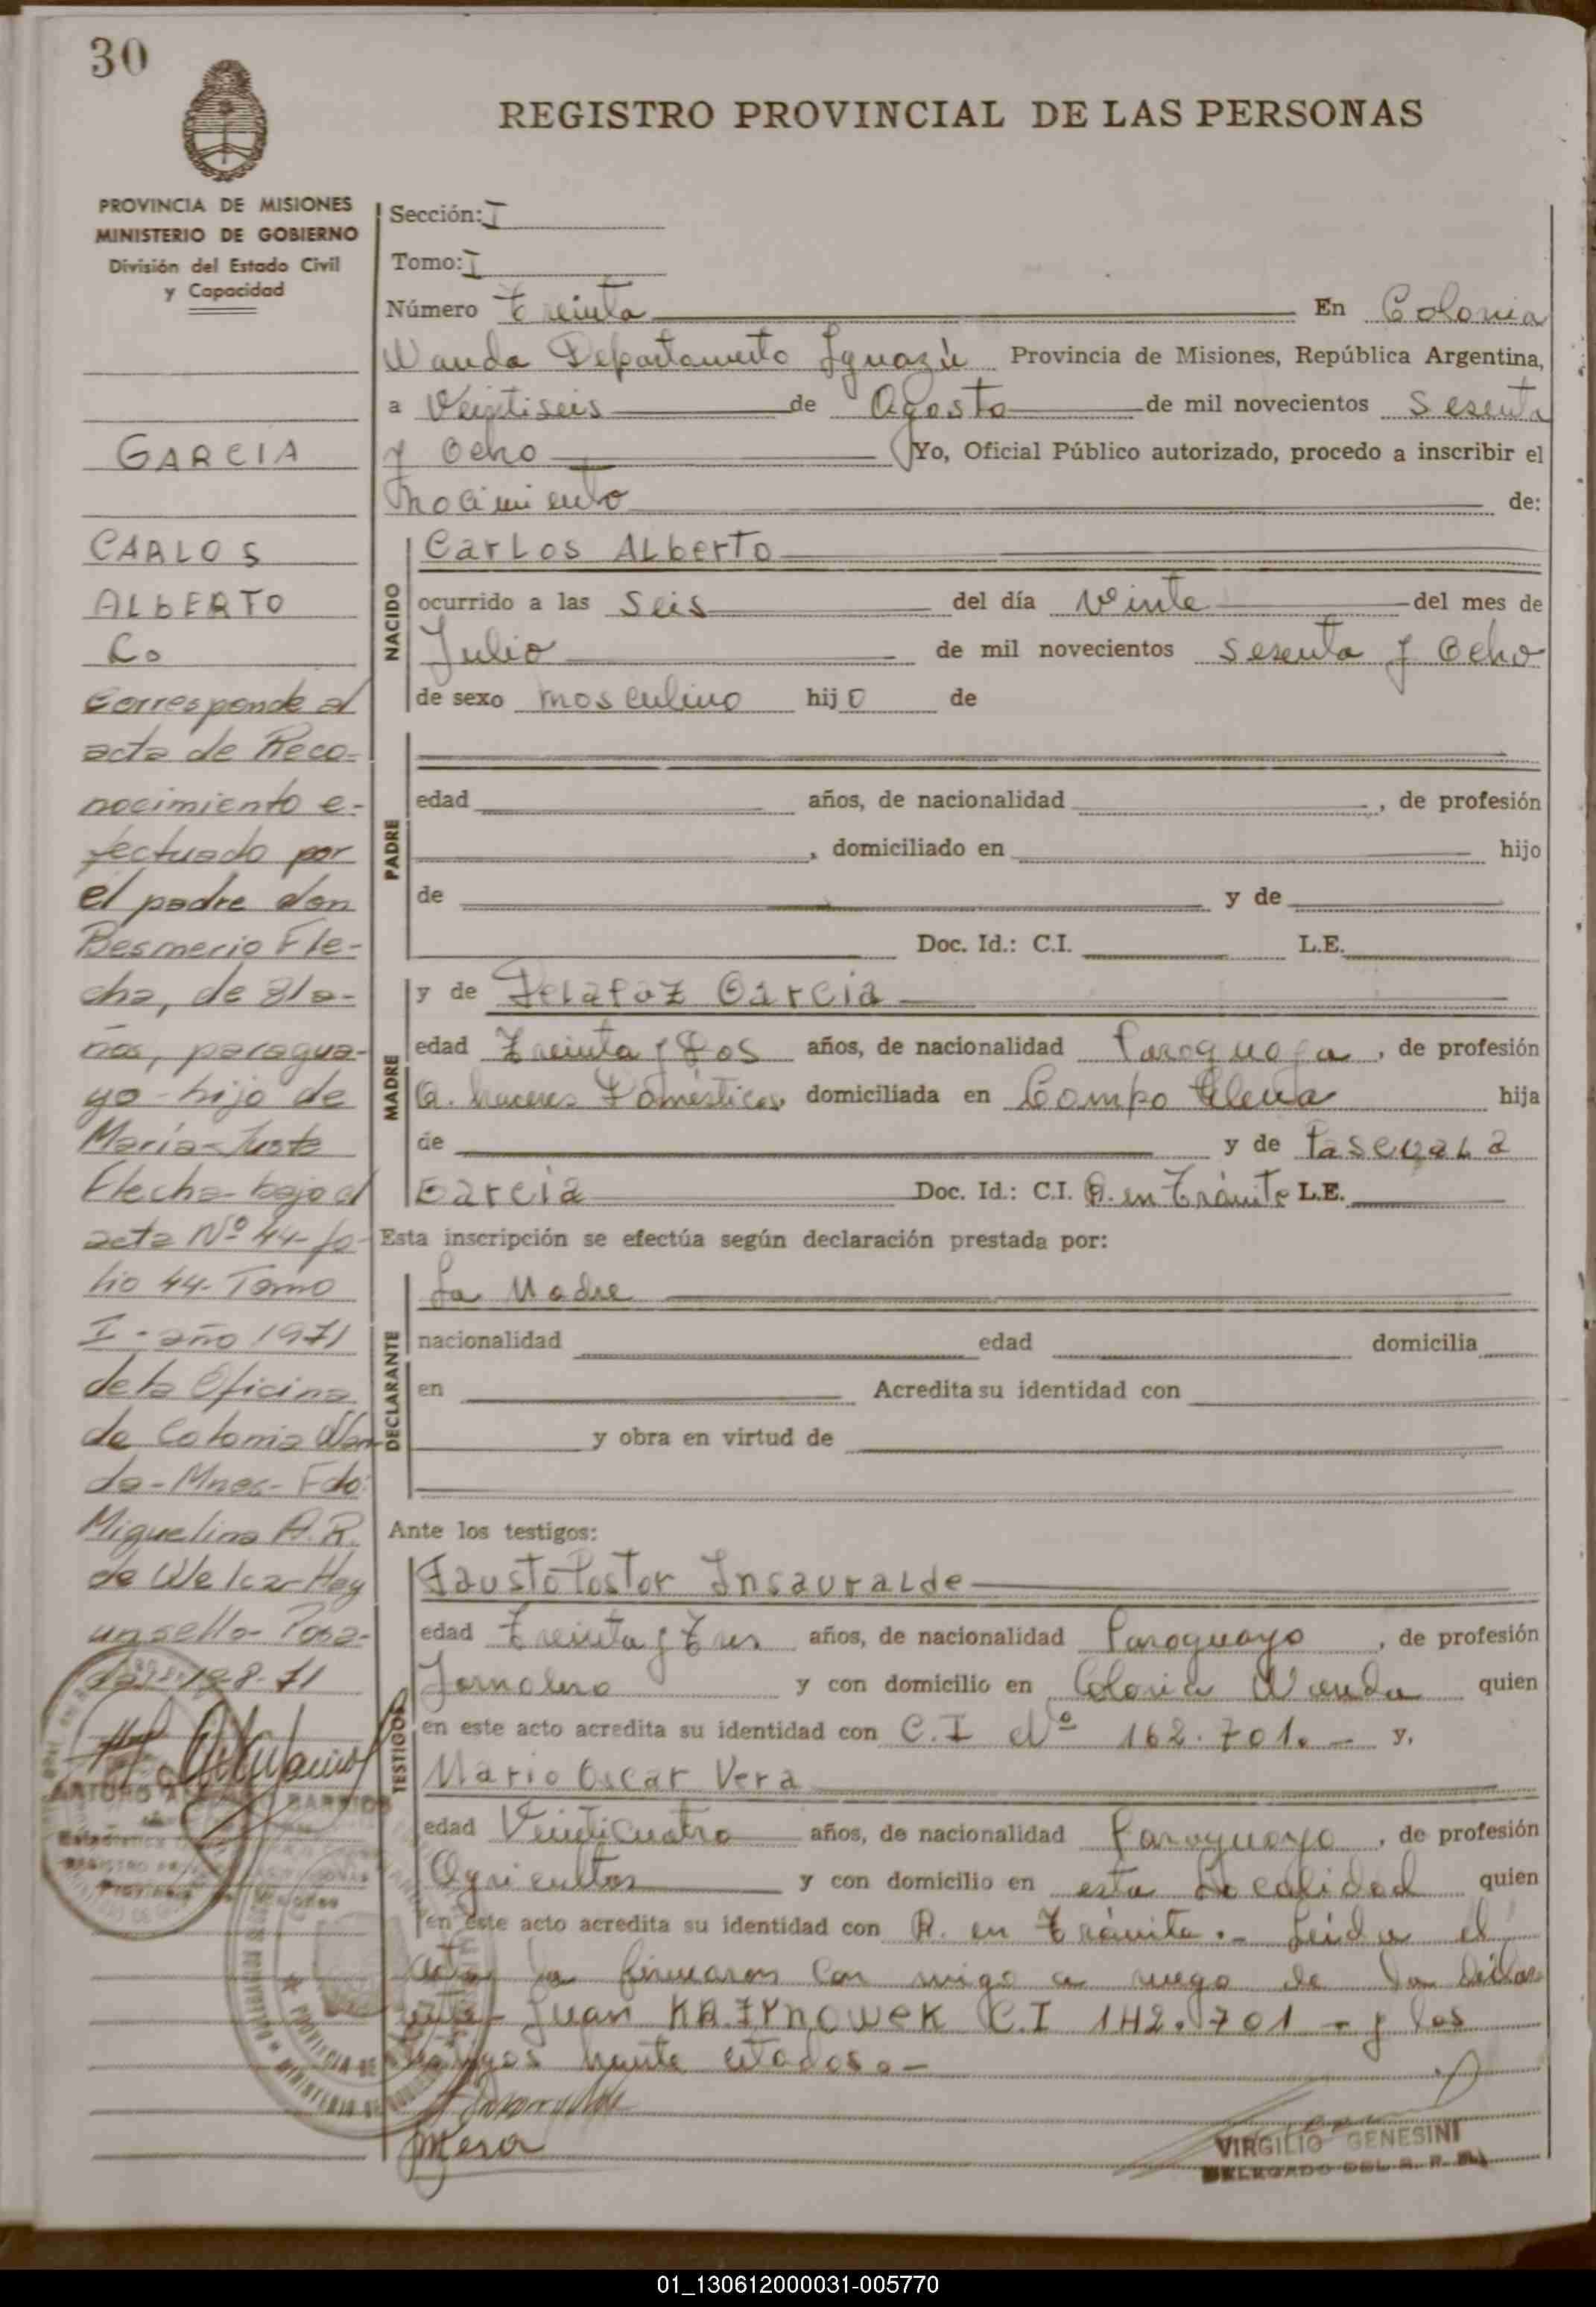 30
REGISTRO PROVINCIAL DE LAS PERSONAS
PROVINCIA DE MISIONES
MINISTERIO DE GOBIERNO
División del Estado Civil
y Capacidad
GARCIA
CARLOS
ALBERTO
Corresponde al
acta de Reco-
nocimiento e-
fectuado por
el padre don
Besmerio Fle-
cha, de 81 a-
ños, paragua-
yo-hijo de
María-Justa
Flecha-bajo el
acta Nº 44-fo-
lio 44-Tomo
I-año 1971
de la Oficina
de Colonia Wan
da-Mnes-Fdo:
Miguelina A.R.
de Welcz-Hay
un sello-Posa-
das 19-8-71
ARTURO BARRIOS
Sección: I
Tomo: I
Número Treinta En Colonia
Wanda Departamento Iguazú Provincia de Misiones, República Argentina,
a Veintiseis de Agosto de mil novecientos Sesenta
y Ocho Yo, Oficial Público autorizado, procedo a inscribir el
Nacimiento de:
NACIDO
Carlos Alberto
ocurrido a las Seis del día Veinte del mes de
Julio de mil novecientos sesenta y Ocho
de sexo masculino hijo de
PADRE
edad años, de nacionalidad , de profesión
, domiciliado en hijo
de y de
Doc. Id.: C.I. L.E.
MADRE
y de Garcia
edad Treinta y Dos años, de nacionalidad Paraguaya , de profesión
Q. haceres Domésticos domiciliada en Campo Elena hija
de y de Pascuala
Garcia Doc. Id.: C.I. R. en Trámite L.E.
Esta inscripción se efectúa según declaración prestada por:
DECLARANTE
La Madre
nacionalidad edad domicilia
en Acredita su identidad con
y obra en virtud de
Ante los testigos:
TESTIGOS
Fausto Pastor Insauralde
edad Treinta y Tres años, de nacionalidad Paraguayo , de profesión
Jornalero y con domicilio en Colonia Wanda quien
en este acto acredita su identidad con C.I Nº 162.701.- y,
Mario Oscar Vera
edad Veinticuatro años, de nacionalidad Paraguayo , de profesión
Agricultor y con domicilio en esta Localidad quien
en este acto acredita su identidad con R. en Trámite.- Leida el
acta la firmaron con migo a ruego de la Decla
rante Juan KAZYNOWEK C.I 142.701 - y los
testigos hante citados.-
VIRGILIO GENESINI
DELEGADO DEL R. P.
01_130612000031-005770